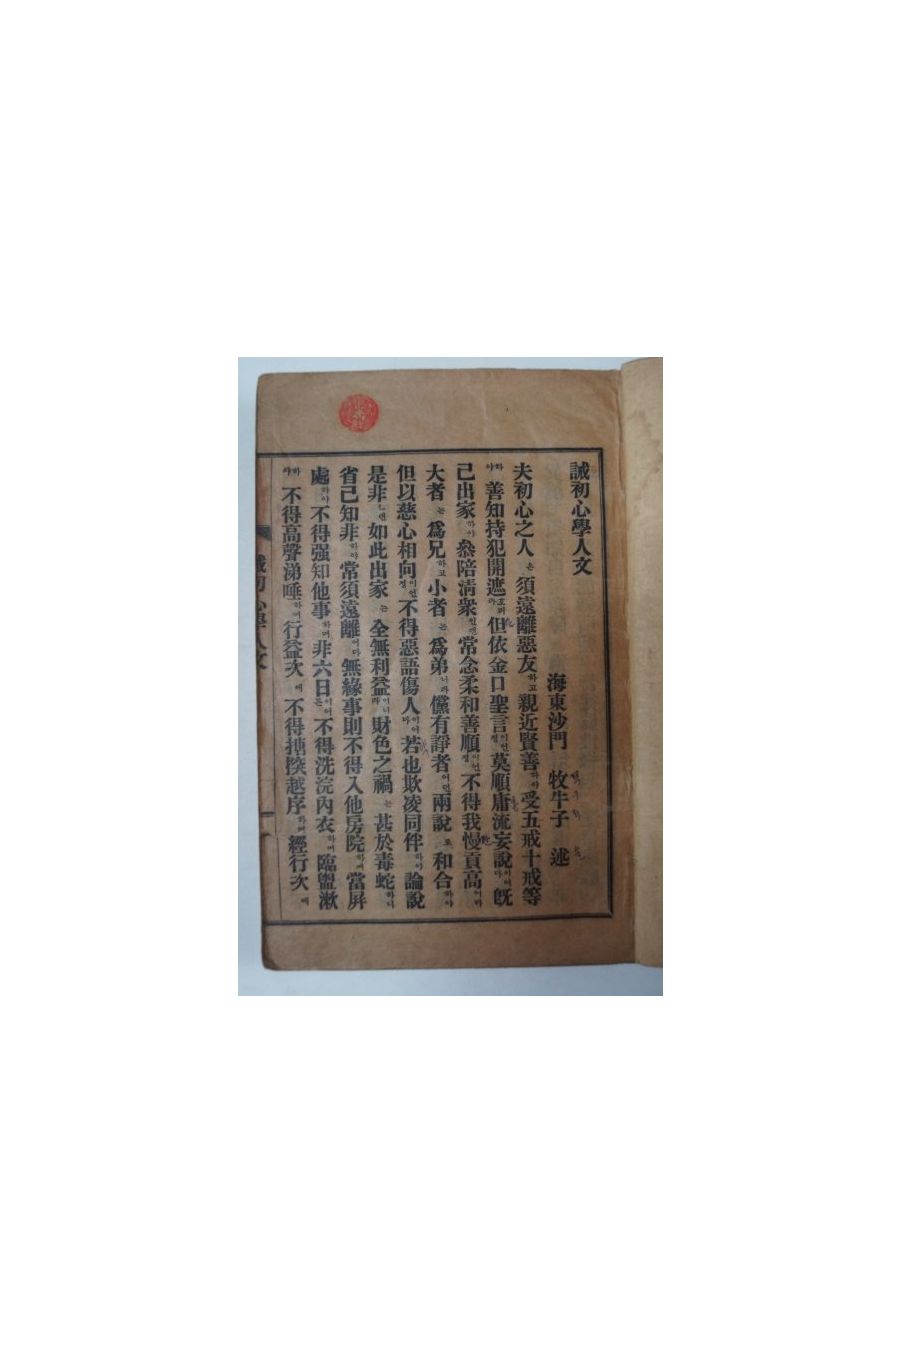 誡初心學人文
海東沙門 牧牛子 述
夫初心之人은 須遠離惡友하고 親近賢善하야 受五戒十戒等
하야 善知持犯開遮니라 但依金口聖言이언정 莫順庸流妄說이어다 旣
已出家하야 叅陪淸衆인댄 常念柔和善順이언정 不得我慢貢高어다
大者는 爲兄하고 小者는 爲弟니라 儻有諍者어든 兩說로 和合하야
但以慈心相向이언정 不得惡語傷人이어다 若也欺凌同伴하야 論說
是非ㄴ댄 如此出家는 全無利益이니라 財色之禍는 甚於毒蛇하니
省己知非하야 常須遠離어다 無緣事則不得入他房院하며 當屛
處하야 不得强知他事하며 非六日이어든 不得洗浣內衣하며 臨盥漱
하야 不得高聲涕唾하며 行益次에 不得搪揬越序하며 經行次에
誡初心學人文